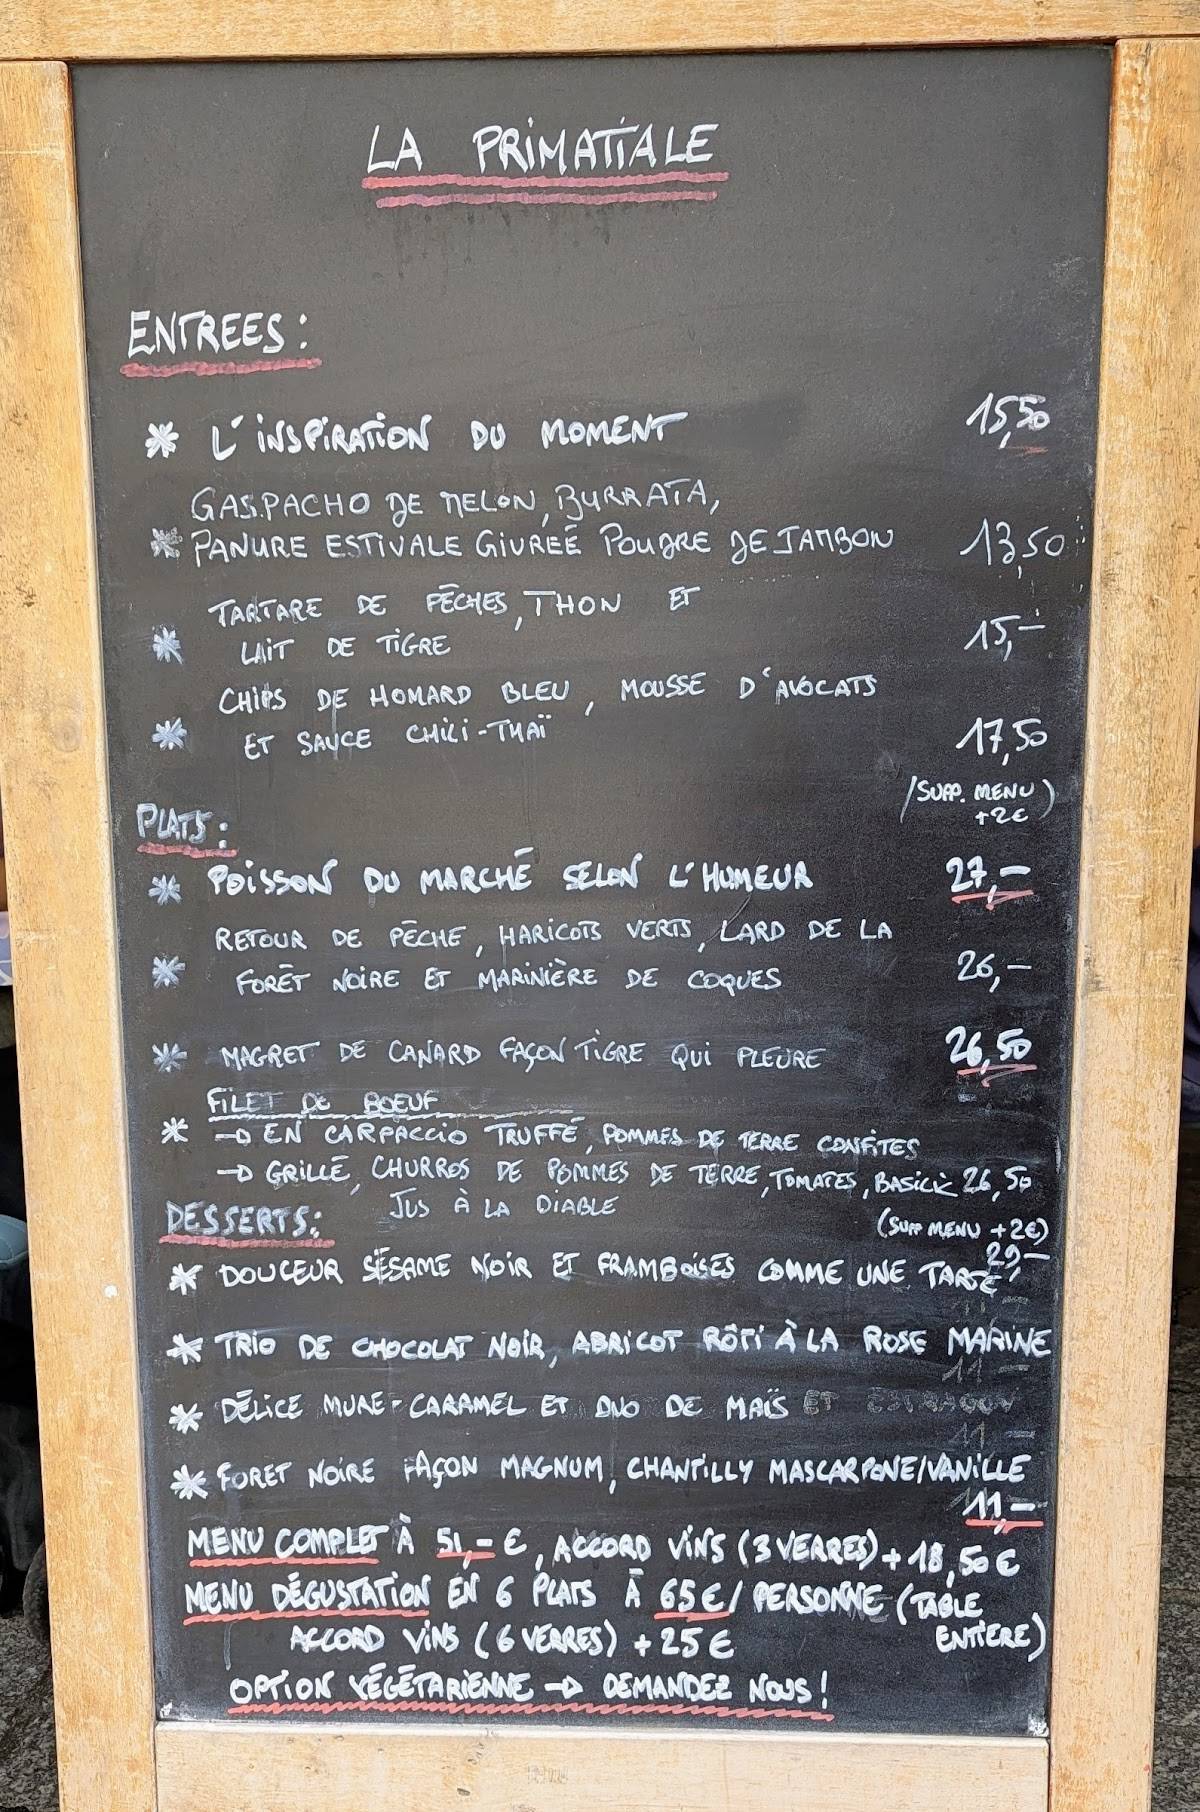 LA PRIMATIALE
ENTREES :
* L'INSPIRATION DU MOMENT 15,50
GASPACHO DE MELON, BURRATA,
* PANURE ESTIVALE GIVRÉE POUDRE DE JAMBON 13,50
TARTARE DE PÊCHES, THON ET
* LAIT DE TIGRE 15,-
CHIPS DE HOMARD BLEU, MOUSSE D'AVOCATS
* ET SAUCE CHILI-THAÏ 17,50
(SUPP. MENU)
+2€
PLATS :
* POISSON DU MARCHÉ SELON L'HUMEUR 27,-
RETOUR DE PÊCHE, HARICOTS VERTS, LARD DE LA
* FORÊT NOIRE ET MARINIÈRE DE COQUES 26,-
* MAGRET DE CANARD FAÇON TIGRE QUI PLEURE 26,50
FILET DE BOEUF
* → EN CARPACCIO TRUFFÉ, POMMES DE TERRE CONFITES
→ GRILLÉ, CHURROS DE POMMES DE TERRE, TOMATES, BASILIC 26,50
JUS À LA DIABLE
(SUPP MENU +2€)
DESSERTS : 29,-
* DOUCEUR SÉSAME NOIR ET FRAMBOISES COMME UNE TARTE
11 -
* TRIO DE CHOCOLAT NOIR, ABRICOT RÔTI À LA ROSE MARINE
11 -
* DÉLICE MURE-CARAMEL ET DUO DE MAÏS ET ESTRAGON
11 -
* FORET NOIRE FAÇON MAGNUM, CHANTILLY MASCARPONE/VANILLE
11,-
MENU COMPLET À 51,- €, ACCORD VINS (3 VERRES) + 18,50 €
MENU DÉGUSTATION EN 6 PLATS À 65 € / PERSONNE (TABLE
ENTIERE)
ACCORD VINS (6 VERRES) + 25 €
OPTION VÉGÉTARIENNE → DEMANDEZ NOUS !